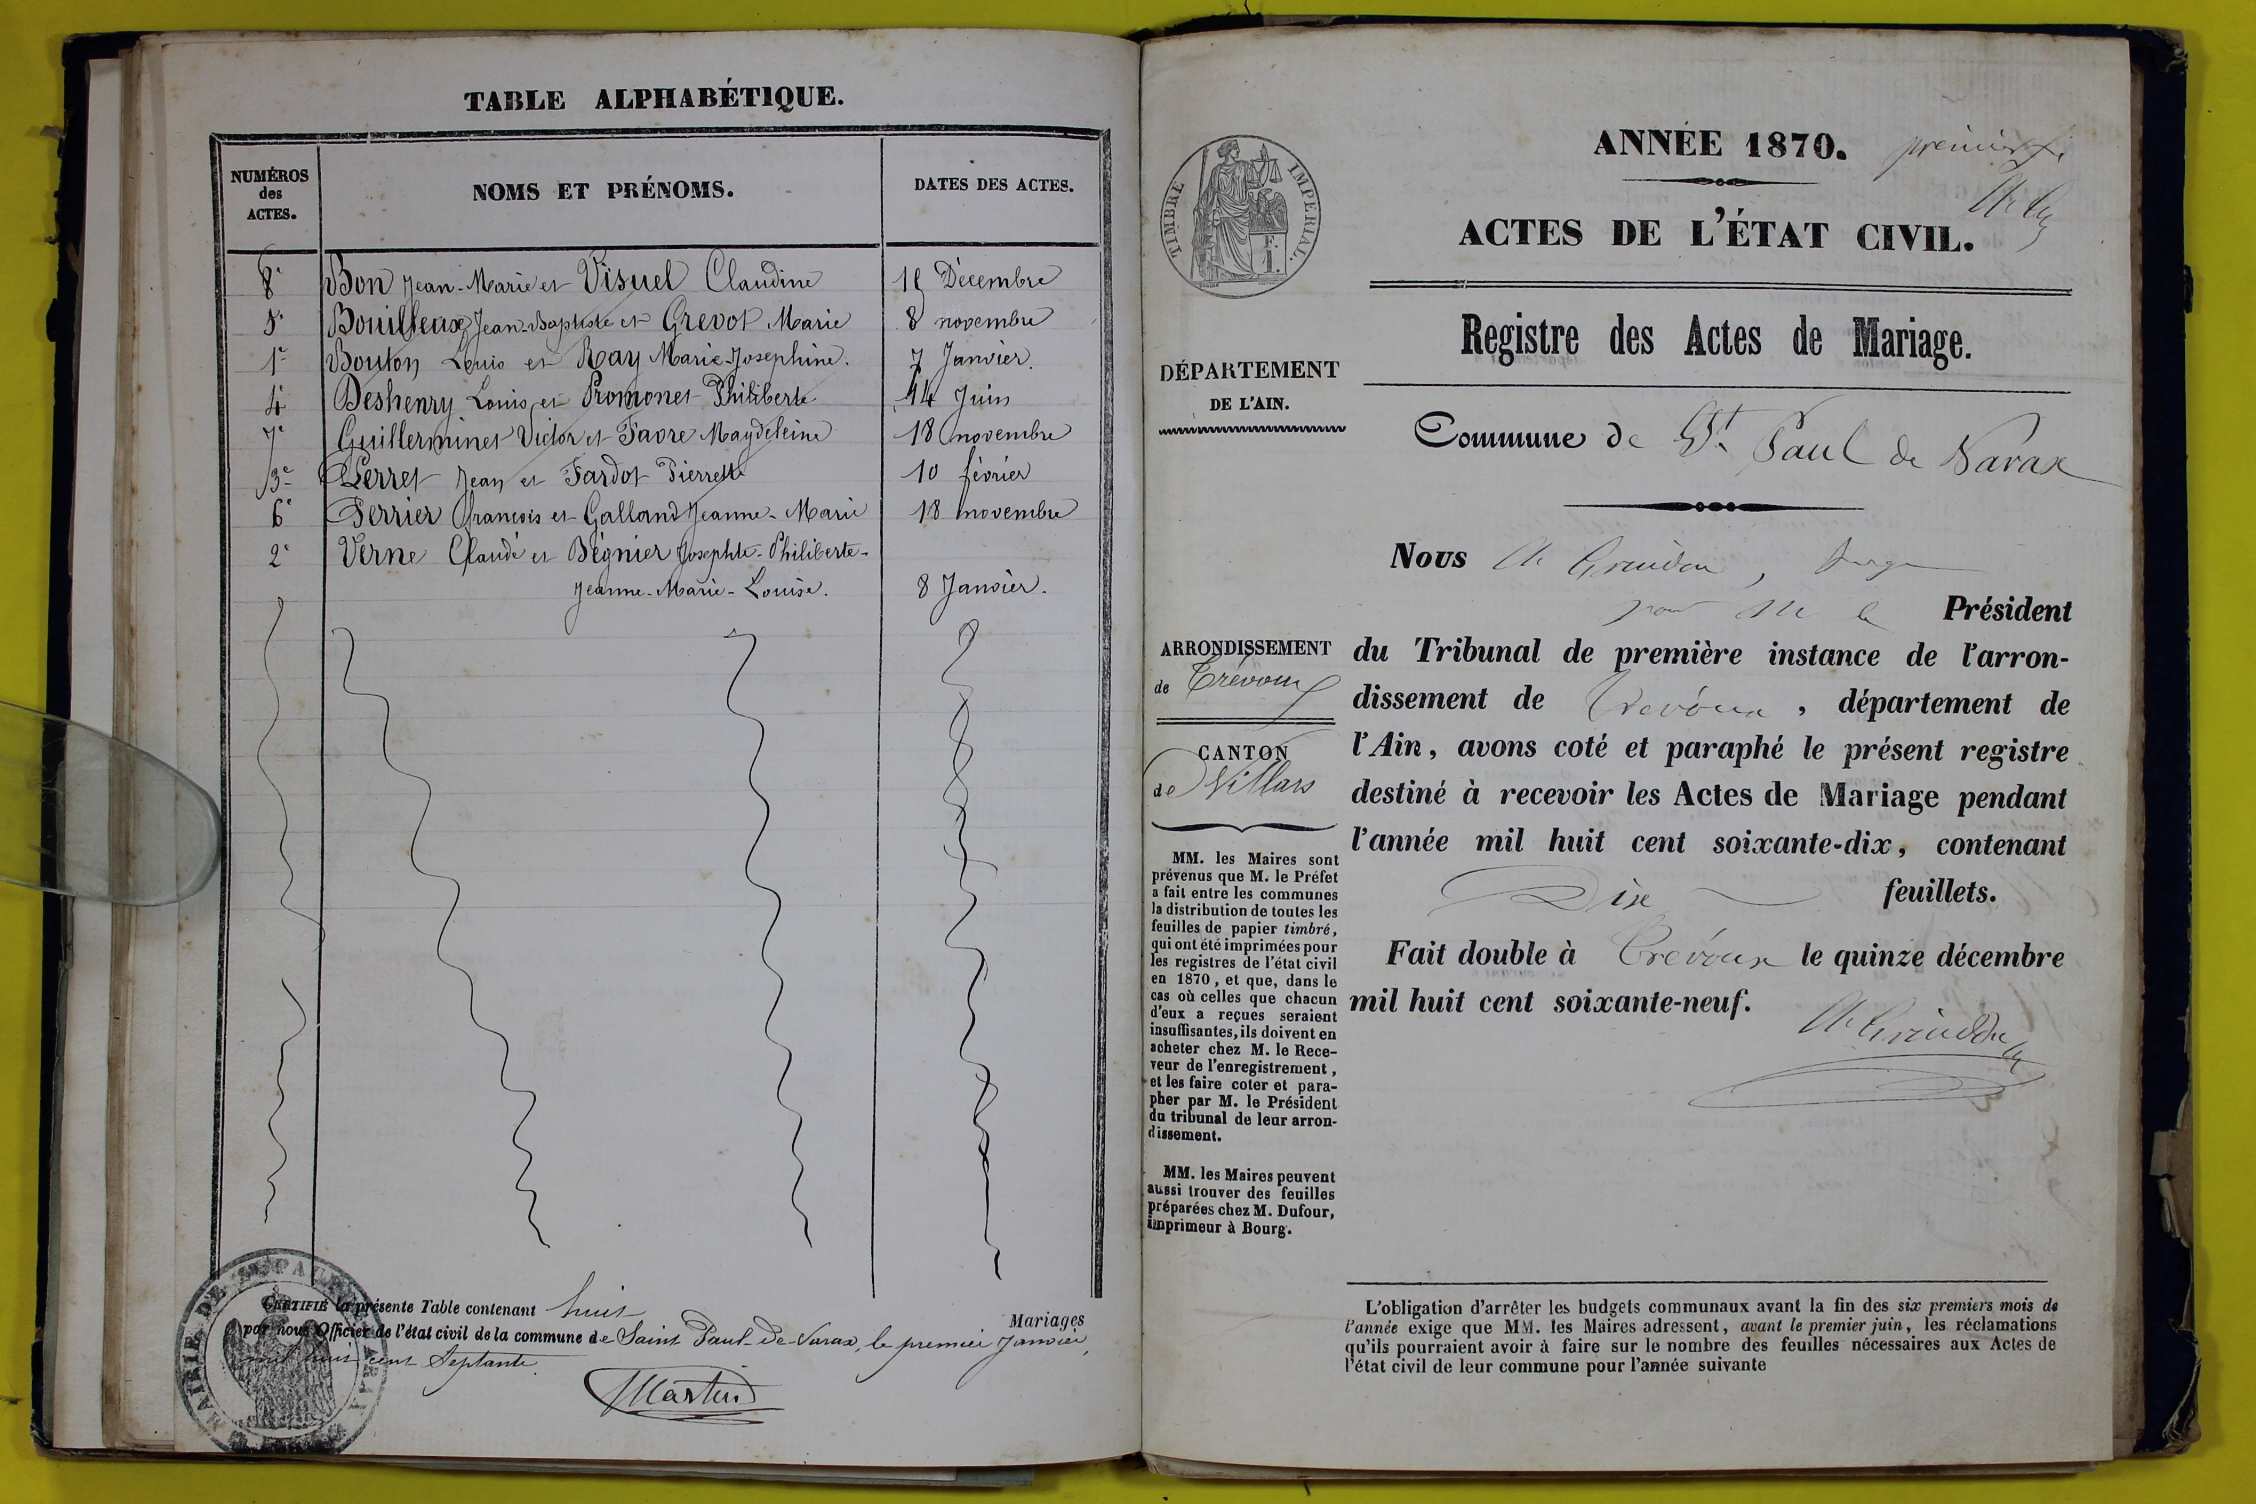 TABLE ALPHABÉTIQUE.
NUMÉROS des ACTES.
NOMS ET PRÉNOMS.
DATES DES ACTES.
8e Bon Jean-Marie et Visuel Claudine Décembre
5e Bouilleaux Jean-Baptiste et Grevot Marie 8 novembre
1er Bouton Louis et Ray Marie-Josephine. 7 Janvier.
4e Deshenry Louis et Promonet Philiberte 14 Juin
7e Guillerminet Victor et Favre Magdeleine 18 novembre
3e Perret Jean et Fardot Pierrette 10 février
6e Perrier françois et Galland Jeanne-Marie 18 novembre
2e Verne Claude et Bégnier Josephte-Philiberte-
Jeanne-Marie-Louise. 8 Janvier.
CERTIFIÉ la présente Table contenant huit Mariages
par nous Officier de l'état civil de la commune de Saint Paul-de-Varax, le premier Janvier,
mil huit cent septante.
Martin
MAIRIE DE ST PAUL DE VARAX
ANNÉE 1870.
premier f.
ACTES DE L'ÉTAT CIVIL.
TIMBRE IMPÉRIAL.
F. 1.
Registre des Actes de Mariage.
DÉPARTEMENT
DE L'AIN.
Commune de St Paul de Varax
Nous juge
pour M le Président
ARRONDISSEMENT
de Trévoux
du Tribunal de première instance de l'arron-
dissement de Trévoux, département de
l'Ain, avons coté et paraphé le présent registre
destiné à recevoir les Actes de Mariage pendant
l'année mil huit cent soixante-dix, contenant
Dix feuillets.
Fait double à Trévoux le quinze décembre
mil huit cent soixante-neuf.
CANTON
de Villars
MM. les Maires sont
prévenus que M. le Préfet
a fait entre les communes
la distribution de toutes les
feuilles de papier timbré,
qui ont été imprimées pour
les registres de l'état civil
en 1870, et que, dans le
cas où celles que chacun
d'eux a reçues seraient
insuffisantes, ils doivent en
acheter chez M. le Rece-
veur de l'enregistrement,
et les faire coter et para-
pher par M. le Président
du tribunal de leur arron-
dissement.
MM. les Maires peuvent
aussi trouver des feuilles
préparées chez M. Dufour,
imprimeur à Bourg.
L'obligation d'arrêter les budgets communaux avant la fin des six premiers mois de
l'année exige que MM. les Maires adressent, avant le premier juin, les réclamations
qu'ils pourraient avoir à faire sur le nombre des feuilles nécessaires aux Actes de
l'état civil de leur commune pour l'année suivante